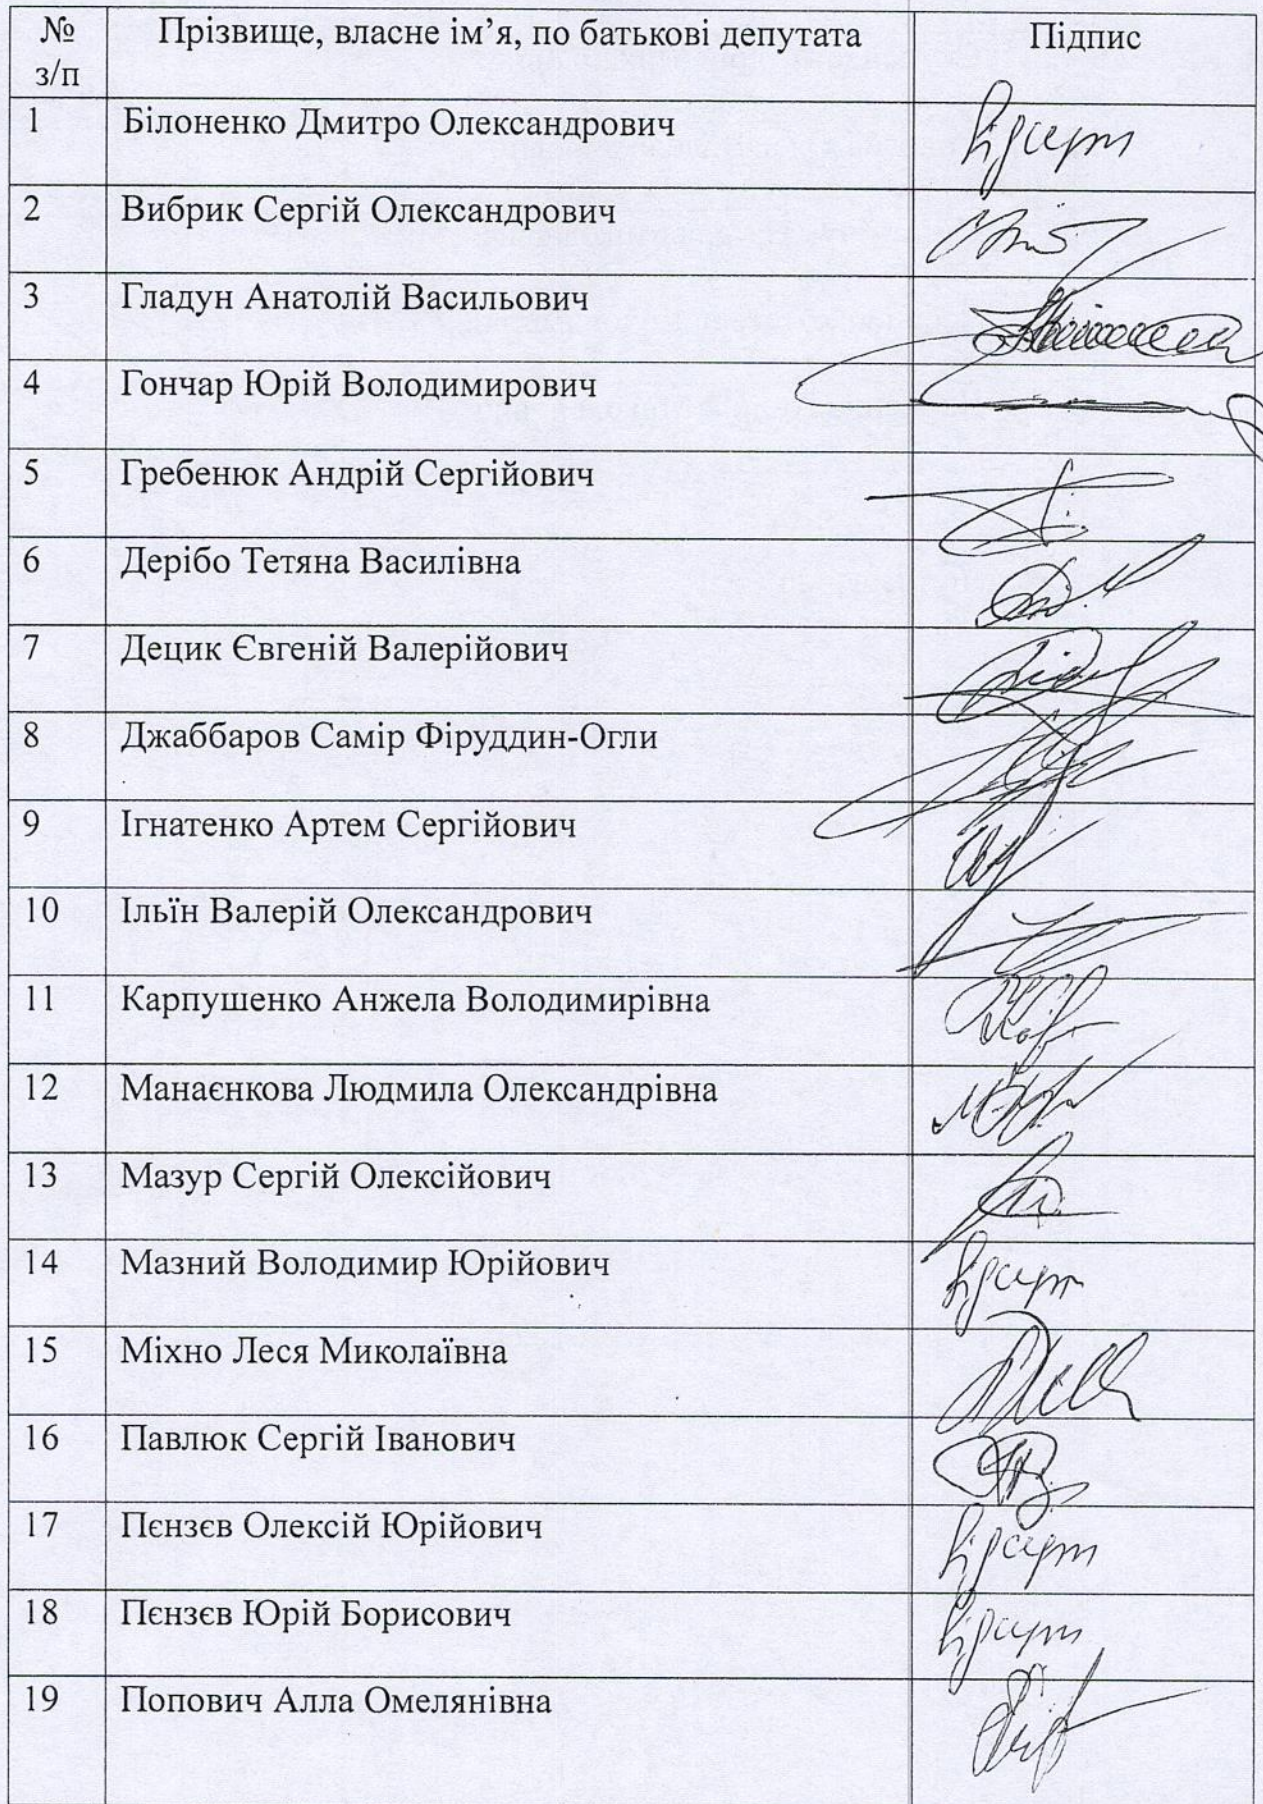 № з/п Прізвище, власне ім’я, по батькові депутата Підпис
1 Білоненко Дмитро Олександрович відсутн
2 Вибрик Сергій Олександрович
3 Гладун Анатолій Васильович
4 Гончар Юрій Володимирович
5 Гребенюк Андрій Сергійович
6 Дерібо Тетяна Василівна
7 Децик Євгеній Валерійович
8 Джаббаров Самір Фіруддин-Огли
9 Ігнатенко Артем Сергійович
10 Ільїн Валерій Олександрович
11 Карпушенко Анжела Володимирівна
12 Манаєнкова Людмила Олександрівна
13 Мазур Сергій Олексійович
14 Мазний Володимир Юрійович відсутн
15 Міхно Леся Миколаївна
16 Павлюк Сергій Іванович
17 Пєнзєв Олексій Юрійович відсутн
18 Пєнзєв Юрій Борисович відсутн
19 Попович Алла Омелянівна